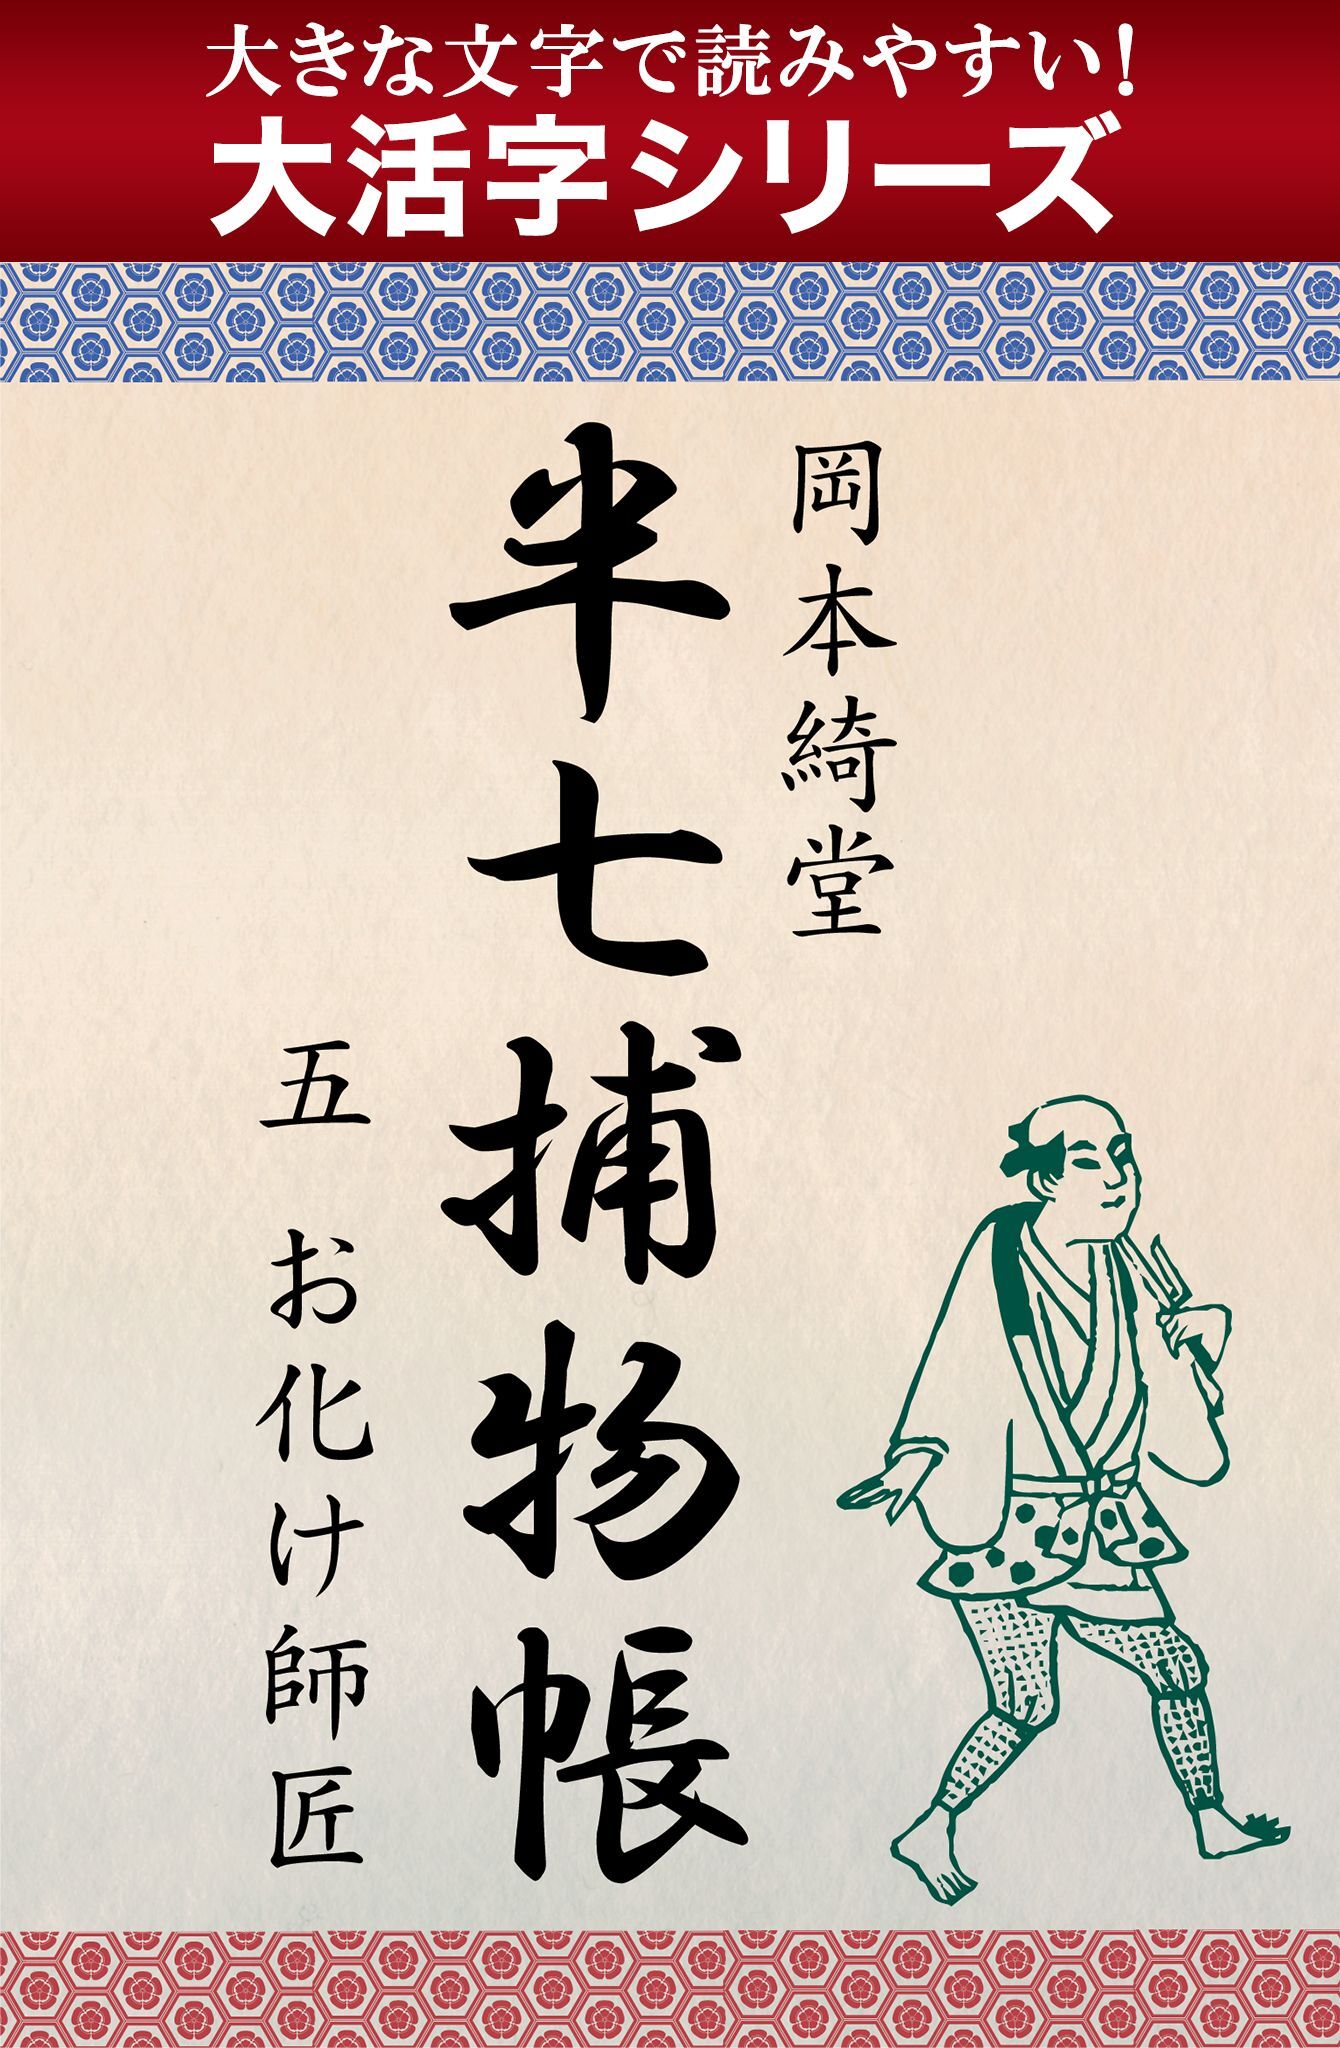 大きな文字で読みやすい！
大活字シリーズ
岡本綺堂
半七捕物帳
五 お化け師匠